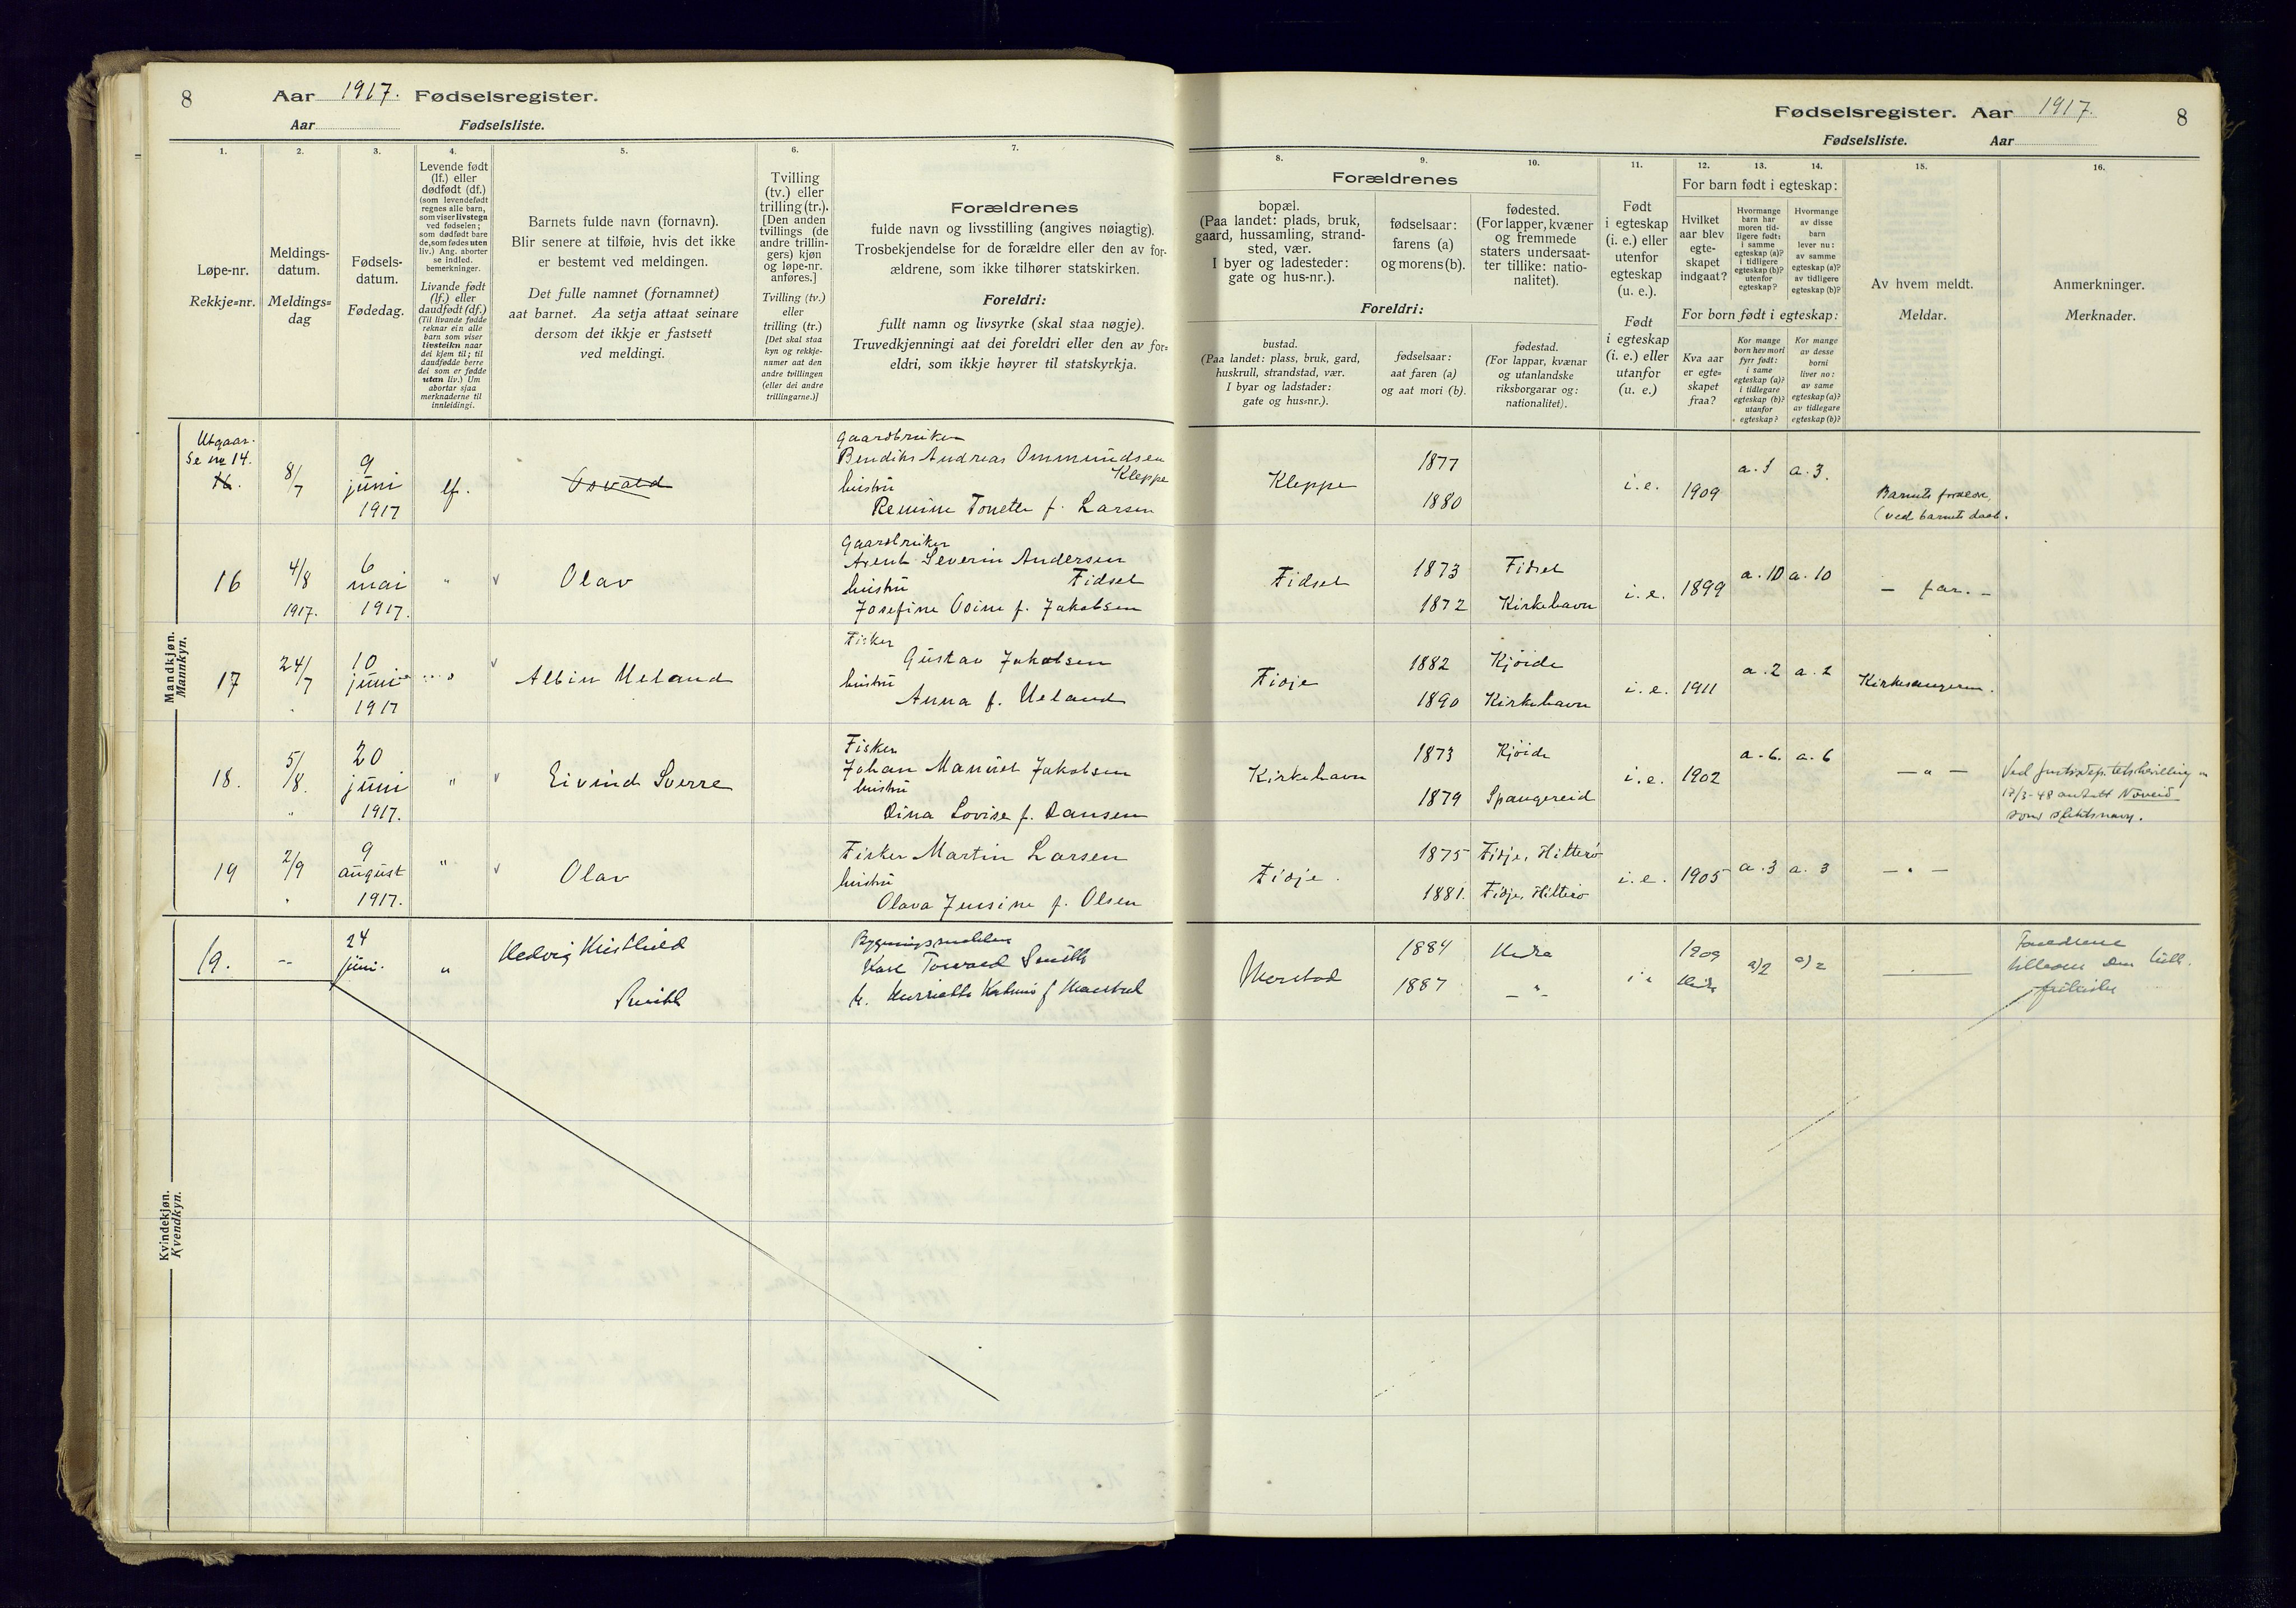 8
Aar 1917. Fødselsregister.
Aar Fødselsliste.
1.
2.
3.
4.
5.
6.
7.
Løpe-nr.
Rekkje=nr.
Meldings-
datum.
Meldings=
dag
Fødsels-
datum.
Fødedag.
Levende født
(lf.) eller
dødfødt (df.)
(som levendefødt
regnes alle barn,
som viser livstegn
ved fødselen;
som dødfødt bare
de, som fødes uten
liv.) Ang. aborter
se indled.
bemerkninger.
Livande født
(lf.) eller
daudfødt (df.)
(Til livande fødde
reknar ein alle
barn som viser
livsteikn naar
dei kjem til; til
daudfødde berre
dei som er fødde
utan liv.) Um
abortar sjaa
merknaderne til
innleidingi.
Barnets fulde navn (fornavn).
Blir senere at tilføie, hvis det ikke
er bestemt ved meldingen.
Det fulle namnet (fornamnet)
aat barnet. Aa setja attaat seinare
dersom det ikkje er fastsett
ved meldingi.
Tvilling
(tv.) eller
trilling (tr.).
[Den anden
tvillings (de
andre trillin-
gers) kjøn
og løpe-nr.
anføres.]
Tvilling (tv.)
eller
trilling (tr.)
[Det skal staa
kyn og rekkje-
numer aat den
andre tvillingen
(eller dei andre
trillingarne.)]
Forældrenes
fulde navn og livsstilling (angives nøiagtig).
Trosbekjendelse for de forældre eller den av for-
ældrene, som ikke tilhører statskirken.
Foreldri:
fullt namn og livsyrke (skal staa nøgje).
Truvedkjenningi aat dei foreldri eller den av for=
eldri, som ikkje høyrer til statskyrkja.
Mandkjøn.
Mannkyn.
Utgaar.
Se no 14.
16.
8/7
9
juni
1917
lf.
Osvald
Gaardbruker
Bendiks Andreas Ommundsen
Kleppe
hustru
Remine Tonete f. Larsen
16
4/8
1917.
6
mai
1917.
"
v
Olav
Gaardbruker
Arent Severin Andersen
hustru Fidsel
Josefine Osine f. Jakobsen
17
24/7
10
juni
1917
v
Albin Ueland
Fisker
Gustav Jakobsen
hustru
Anna f. Ueland
18.
5/8.
20
juni
1917.
"
v
Eivind Sverre
Fisker
Johan Manuel Jakobsen
hustru
Dina Lovise f. Dansen
19
2/9
9
august
1917.
"
v
Olav
Fisker Martin Larsen
hustru
Olava Jensine f. Olsen
Kvindekjøn.
Kvendkyn.
19.
--
24
juni.
"
Hedvig
Smith
Karl Torvald Smith
Fødselsregister. Aar 1917.
8
Fødselsliste. Aar
8.
9.
10.
11.
12.
13.
14.
15.
16.
Forældrenes
bopæl.
(Paa landet: plads, bruk,
gaard, hussamling, strand-
sted, vær.
I byer og ladesteder:
gate og hus-nr.).
fødselsaar:
farens (a)
og morens (b).
fødested.
(For lapper, kvæner
og fremmede
staters undersaat-
ter tillike: natio-
nalitet).
Foreldri:
bustad.
(Paa landet: plass, bruk, gard,
huskrull, strandstad, vær.
I byar og ladstader:
gate og hus=nr.).
fødselsaar:
aat faren (a)
og aat mori (b).
fødestad.
(For lappar, kvænar
og utanlandske
riksborgarar og:
nationalitet).
Født
i egteskap
(i. e.) eller
utenfor
egteskap
(u. e.).
Født
i egteskap
(i. e.) eller
utanfor
(u. e.)
For barn født i egteskap:
Hvilket
aar blev
egte-
skapet
indgaat?
Hvormange
barn har
moren tid-
ligere født:
i samme
egteskap (a)?
i tidligere
egteskap (b)?
utenfor
egteskap?
Hvormange
av disse
barn
lever nu:
av samme
egteskap (a)?
av tidligere
egteskap (b)?
For born født i egteskap:
Kva aar
er egte=
skapet
fraa?
Kor mange
born hev mori
fyrr født:
i same
egteskap (a)?
i tidlegare
egteskap (b)?
utanfor
egteskap?
Kor mange
av desse
borni
liver no:
av same
egteskap (a)?
av tidlegare
egteskap (b)?
Av hvem meldt.
Meldar.
Anmerkninger.
Merknader.
Kleppe
1877
1880
i. e.
1909
a. 3.
(ved barnets daab.
Fidsel
1873
1872
Fidsel
Kirkehavn
i. e.
1899
a. 10
a. 10
– far. –
Fidje
1882
1890
Kjöide
Kirkehavn
i. e.
1911
a. 2
a. 2
Kirkesangeren.
Kirkehavn
1873
1879
Kjöide
Spangereid
i. e.
1902
a. 6.
a. 6
– " –
17/3-48 antatt
som slektsnavn.
Fidje.
1875
1881.
Fidje, Hitterö
Fidje, Hitterö
i. e.
1905
a. 3
a. 3
– " –
1884
1887
Hidra
– " –
1909
a) 2
a) 2
Forældrene
tilhører den luth.
frikirke